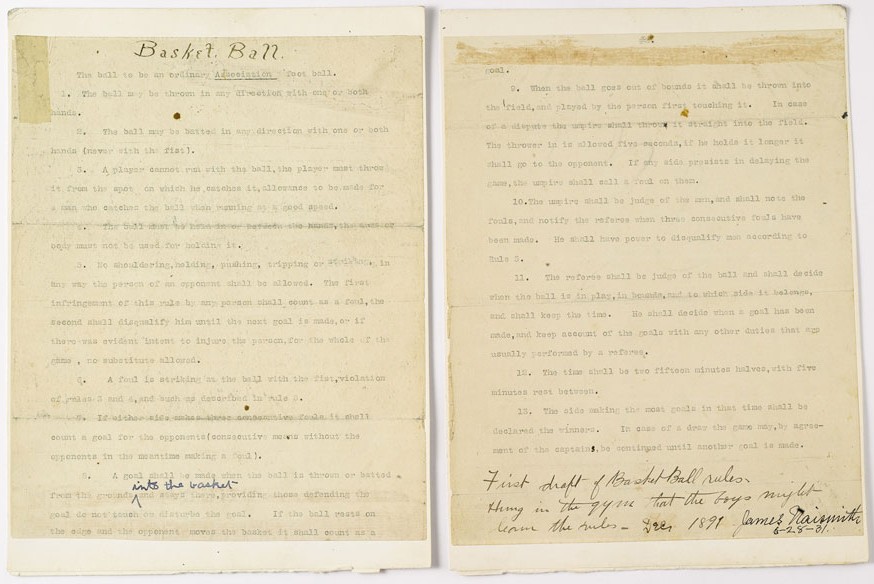 Basket Ball.
The ball to be an ordinary Association foot ball.
1. The ball may be thrown in any direction with one or both
hands.
2. The ball may be batted in any direction with one or both
hands (never with the fist).
3. A player cannot run with the ball, the player must throw
it from the spot on which he catches it, allowance to be made for
a man who catches the ball when running at a good speed.
4. The ball must be held in or between the hands, the arms or
body must not be used for holding it.
5. No shouldering, holding, pushing, tripping or striking, in
any way the person of an opponent shall be allowed. The first
infringement of this rule by any person shall count as a foul, the
second shall disqualify him until the next goal is made, or if
there was evident intent to injure the person, for the whole of the
game, no substitute allowed.
6. A foul is striking at the ball with the fist, violation
of rules 3 and 4, and such as described in rule 5.
7. If either side makes three consecutive fouls it shall
count a goal for the opponents (consecutive means without the
opponents in the meantime making a foul).
8. A goal shall be made when the ball is thrown or batted
into the basket
from the grounds and stays there, providing those defending the
goal do not touch or disturbe the goal. If the ball rests on
the edge and the opponent moves the basket it shall count as a
goal.
9. When the ball goes out of bounds it shall be thrown into
the field, and played by the person first touching it. In case
of a dispute the umpire shall throw it straight into the field.
The thrower in is allowed five seconds, if he holds it longer it
shall go to the opponent. If any side presists in delaying the
game, the umpire shall call a foul on them.
10. The umpire shall be judge of the men, and shall note the
fouls, and notify the referee when three consecutive fouls have
been made. He shall have power to disqualify men according to
Rule 5.
11. The referee shall be judge of the ball and shall decide
when the ball is in play, in bounds, and to which side it belongs,
and shall keep the time. He shall decide when a goal has been
made, and keep account of the goals with any other duties that are
usually performed by a referee.
12. The time shall be two fifteen minutes halves, with five
minutes rest between.
13. The side making the most goals in that time shall be
declared the winners. In case of a draw the game may, by agree-
ment of the captains, be continued until another goal is made.
First draft of Basket Ball rules.
Hung in the gym that the boys might
learn the rules - Dec. 1891 James Naismith
6-28-31.